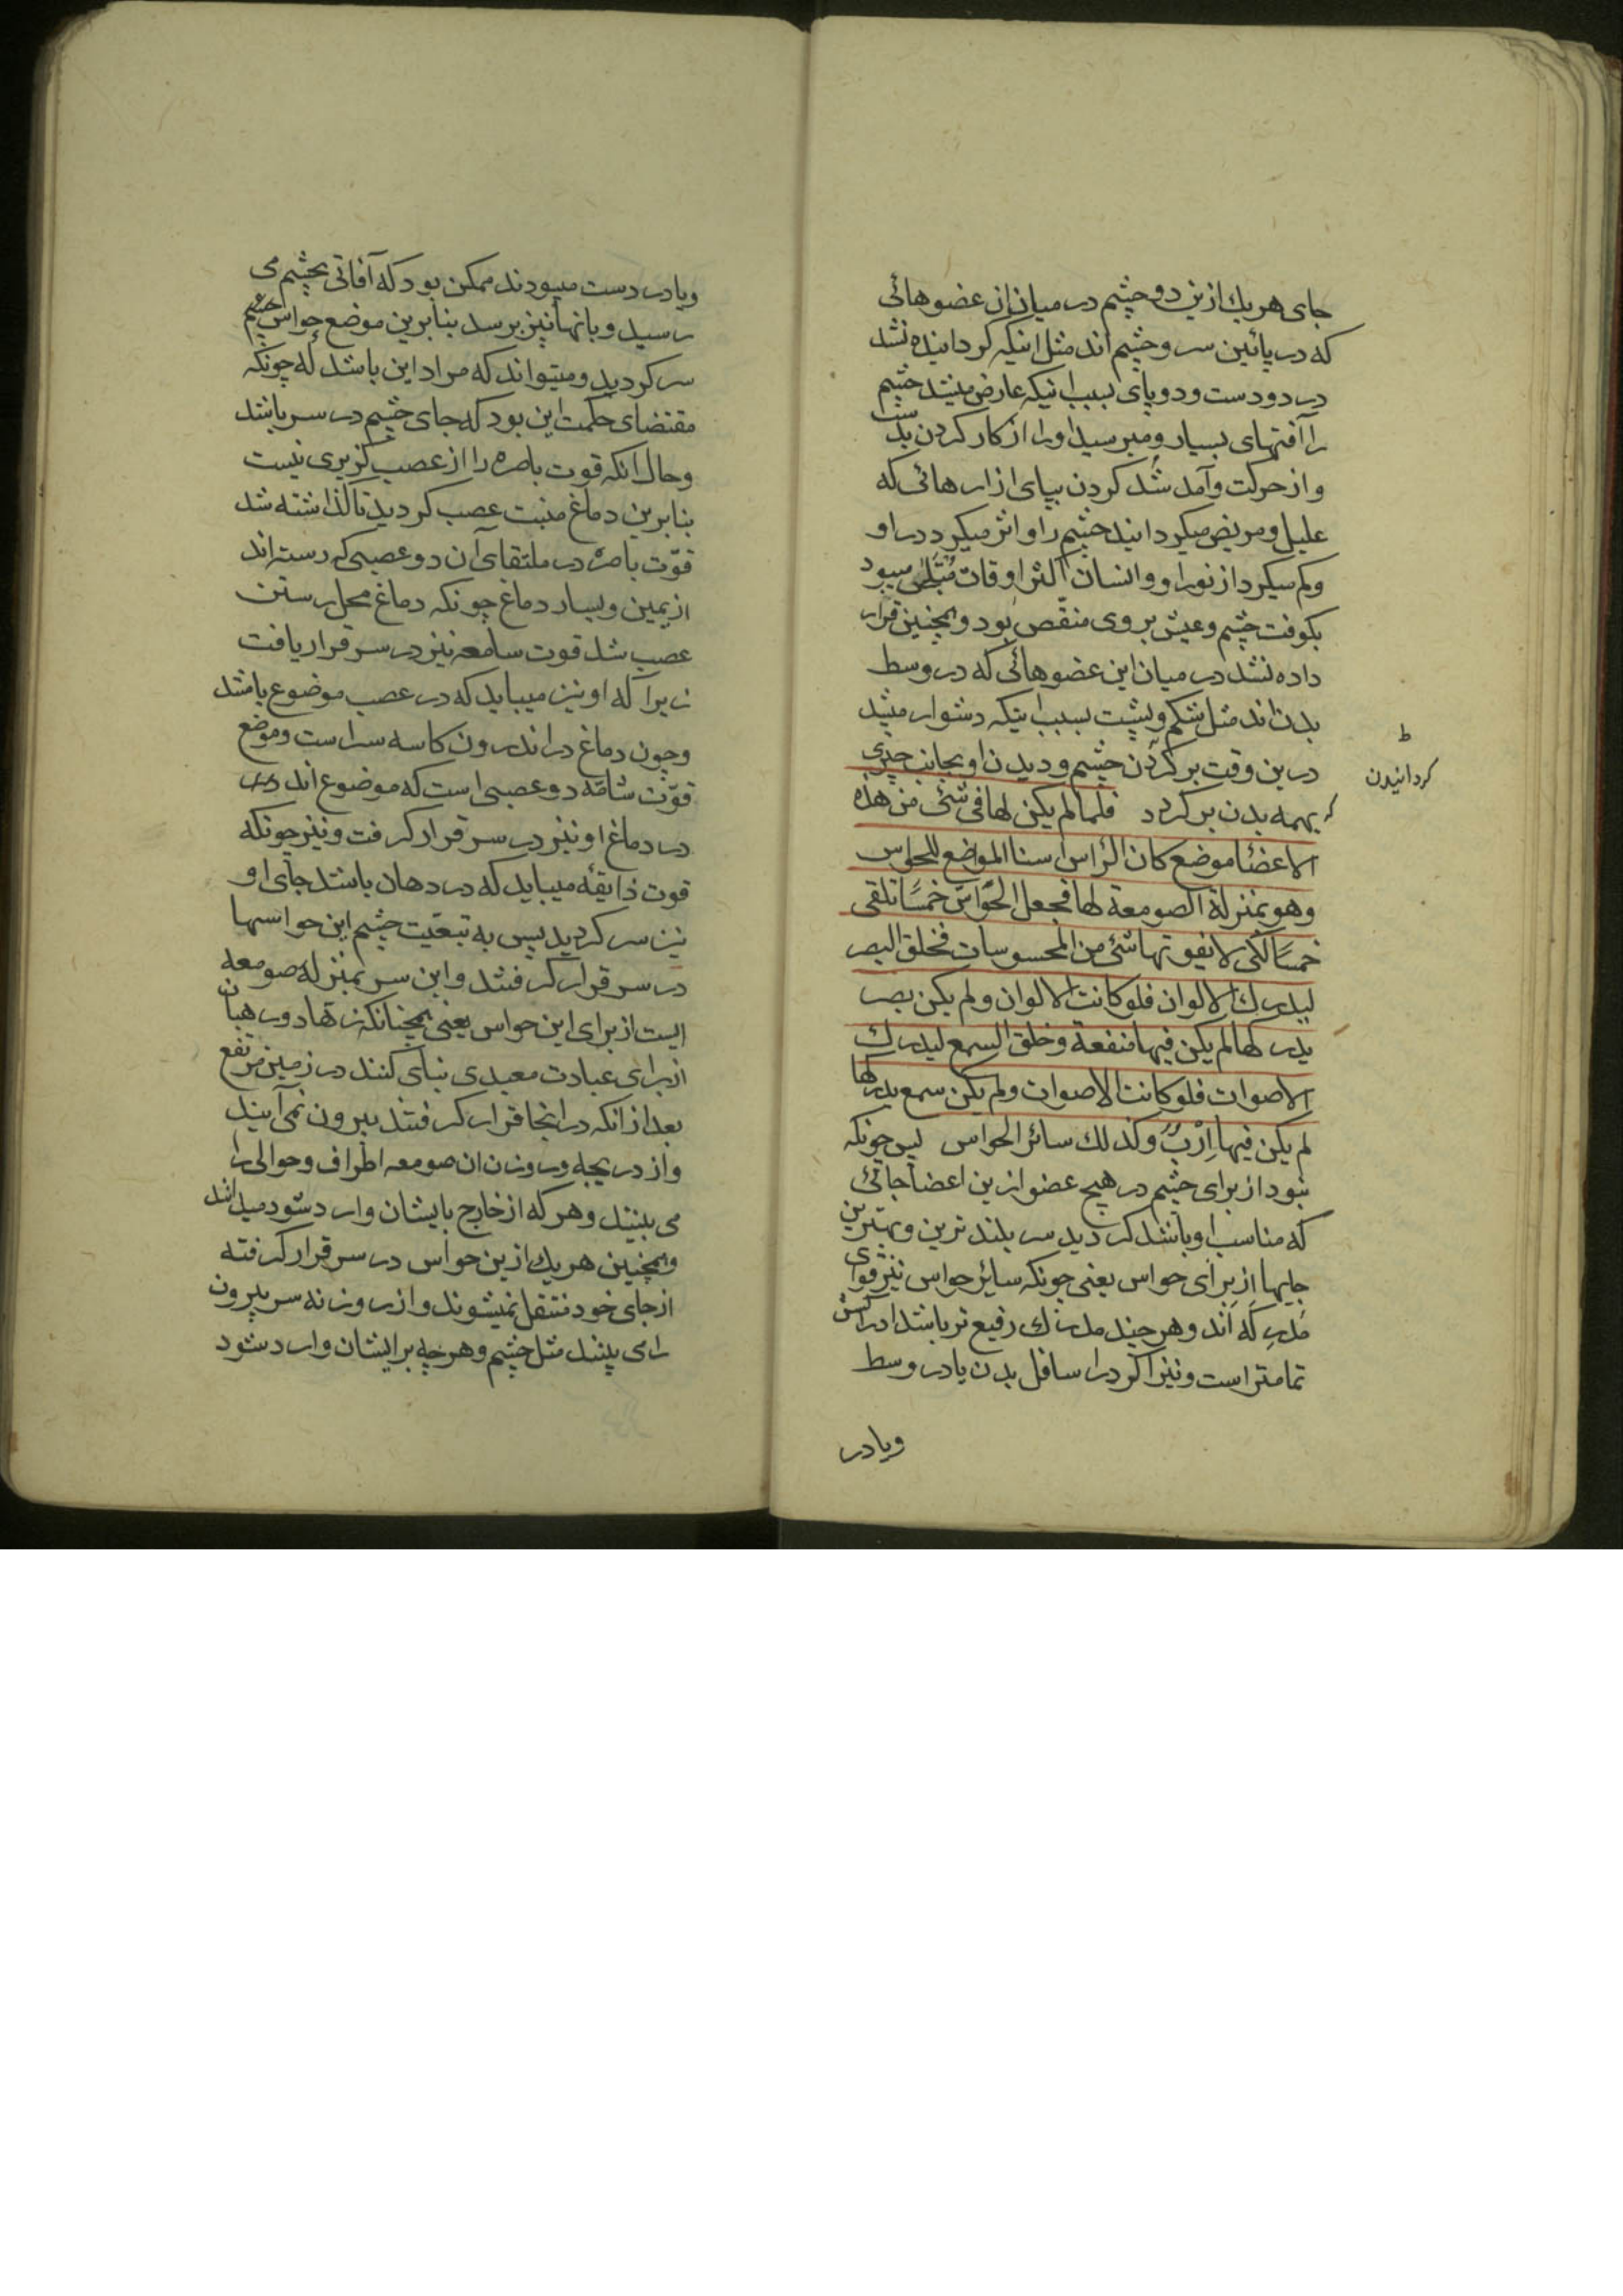 جای هر یك ازین دو چشم در میان ان عضوهائی
که در پائین سر و چشم اند مثل اینکه کردانیده نشد
در دو دست و دو پای بسبب اینکه عارض میشد چشم
را آفتهای بسیار و میرسید او را از کار کردن بدست
و از حرکت و آمد شد کردن بپای ازارهائی که
علیل و مریض میکردانید چشم را و اثر میکرد در او
و کم میکرد از نور او و انسان اکثر اوقات مبتلی میبود
بکوفت چشم و عیش بر وی منقص بود و همچنین قرار
داده نشد در میان این عضوهائی که در وسط
بدن اند مثل شکم و پشت بسبب اینکه دشوار میشد
درین وقت بر کردن چشم و دیدن او بجانب چیزی
ط
کردانیدن
بهمه بدن بر کردد فلما لم یکن لها فی شئ من هذه
الاعضا موضع کان الرأس اسنا المواضع للحواس
وهو بمنزلة الصومعة لها فجعل الحواس خمسا تلقی
خمسا لکی لا یفوتها شئ من المحسوسات فخلق البصر
لیدرك الالوان فلو کانت الالوان و لم یکن بصر
یدرکها لم یکن فیها منفعة و خلق السمع لیدرك
الاصوات فلو کانت الاصوات و لم یکن سمع یدرکها
لم یکن فیها اِرْبٌ و کذلك سائر الحواس پس چونکه
نبود از برای چشم در هیچ عضو ازین اعضا جائی
که مناسب او باشد کردید سر بلند ترین و بهترین
جایها از برای حواس یعنی چونکه سائر حواس نیز قوای
مدرِکَه اند و هر چند مدرك رفیع تر باشد ادراکش
تمامتر است و نیز اکر در اسافل بدن یا در وسط
و یا در
و یا در دست میبودند ممکن بود که آفاتی بچشم می
رسید و بانها نیز برسد بنابرین موضع حواس چشم
سر کردید و میتواند که مراد این باشد که چونکه
مقتضای حکمت این بود که جای چشم در سر باشد
و حال انکه قوت باصره را از عصب کزیری نیست
بنابرین دماغ منبت عصب کردید تا کذاشته شد
قوّت باصره در ملتقای آن دو عصبی که رسته اند
از یمین و یسار دماغ چونکه دماغ محل رستن
عصب شد قوت سامعه نیز در سر قرار یافت
زیرا که او نیز میباید که در عصب موضوع باشد
و چون دماغ در اندرون کاسه سر است و موضع
قوّت شامّه دو عصبی است که موضوع اند
در دماغ او نیز در سر قرار کرفت و نیز چونکه
قوت ذایقه میباید که در دهان باشد جای او
نیز سر کردید پس به تبعیّت چشم این حواسها
در سر قرار کرفتند و این سر بمنزله صومعه
ایست از برای این حواس یعنی همچنانکه زهاد و رهبان
از برای عبادت معبدی بنای کنند در زمین مرتفع
بعد از انکه در انجا قرار کرفتند بیرون نمی آیند
و از دریچه و روزن ان صومعه اطراف و حوالی را
می بینند و هر که از خارج بایشان وارد شود میدانند
و همچنین هر یك ازین حواس در سر قرار کرفته
از جای خود منتقل نمیشوند و از روزنه سر بیرون
را می بینند مثل چشم و هر چه بر ایشان وارد شود